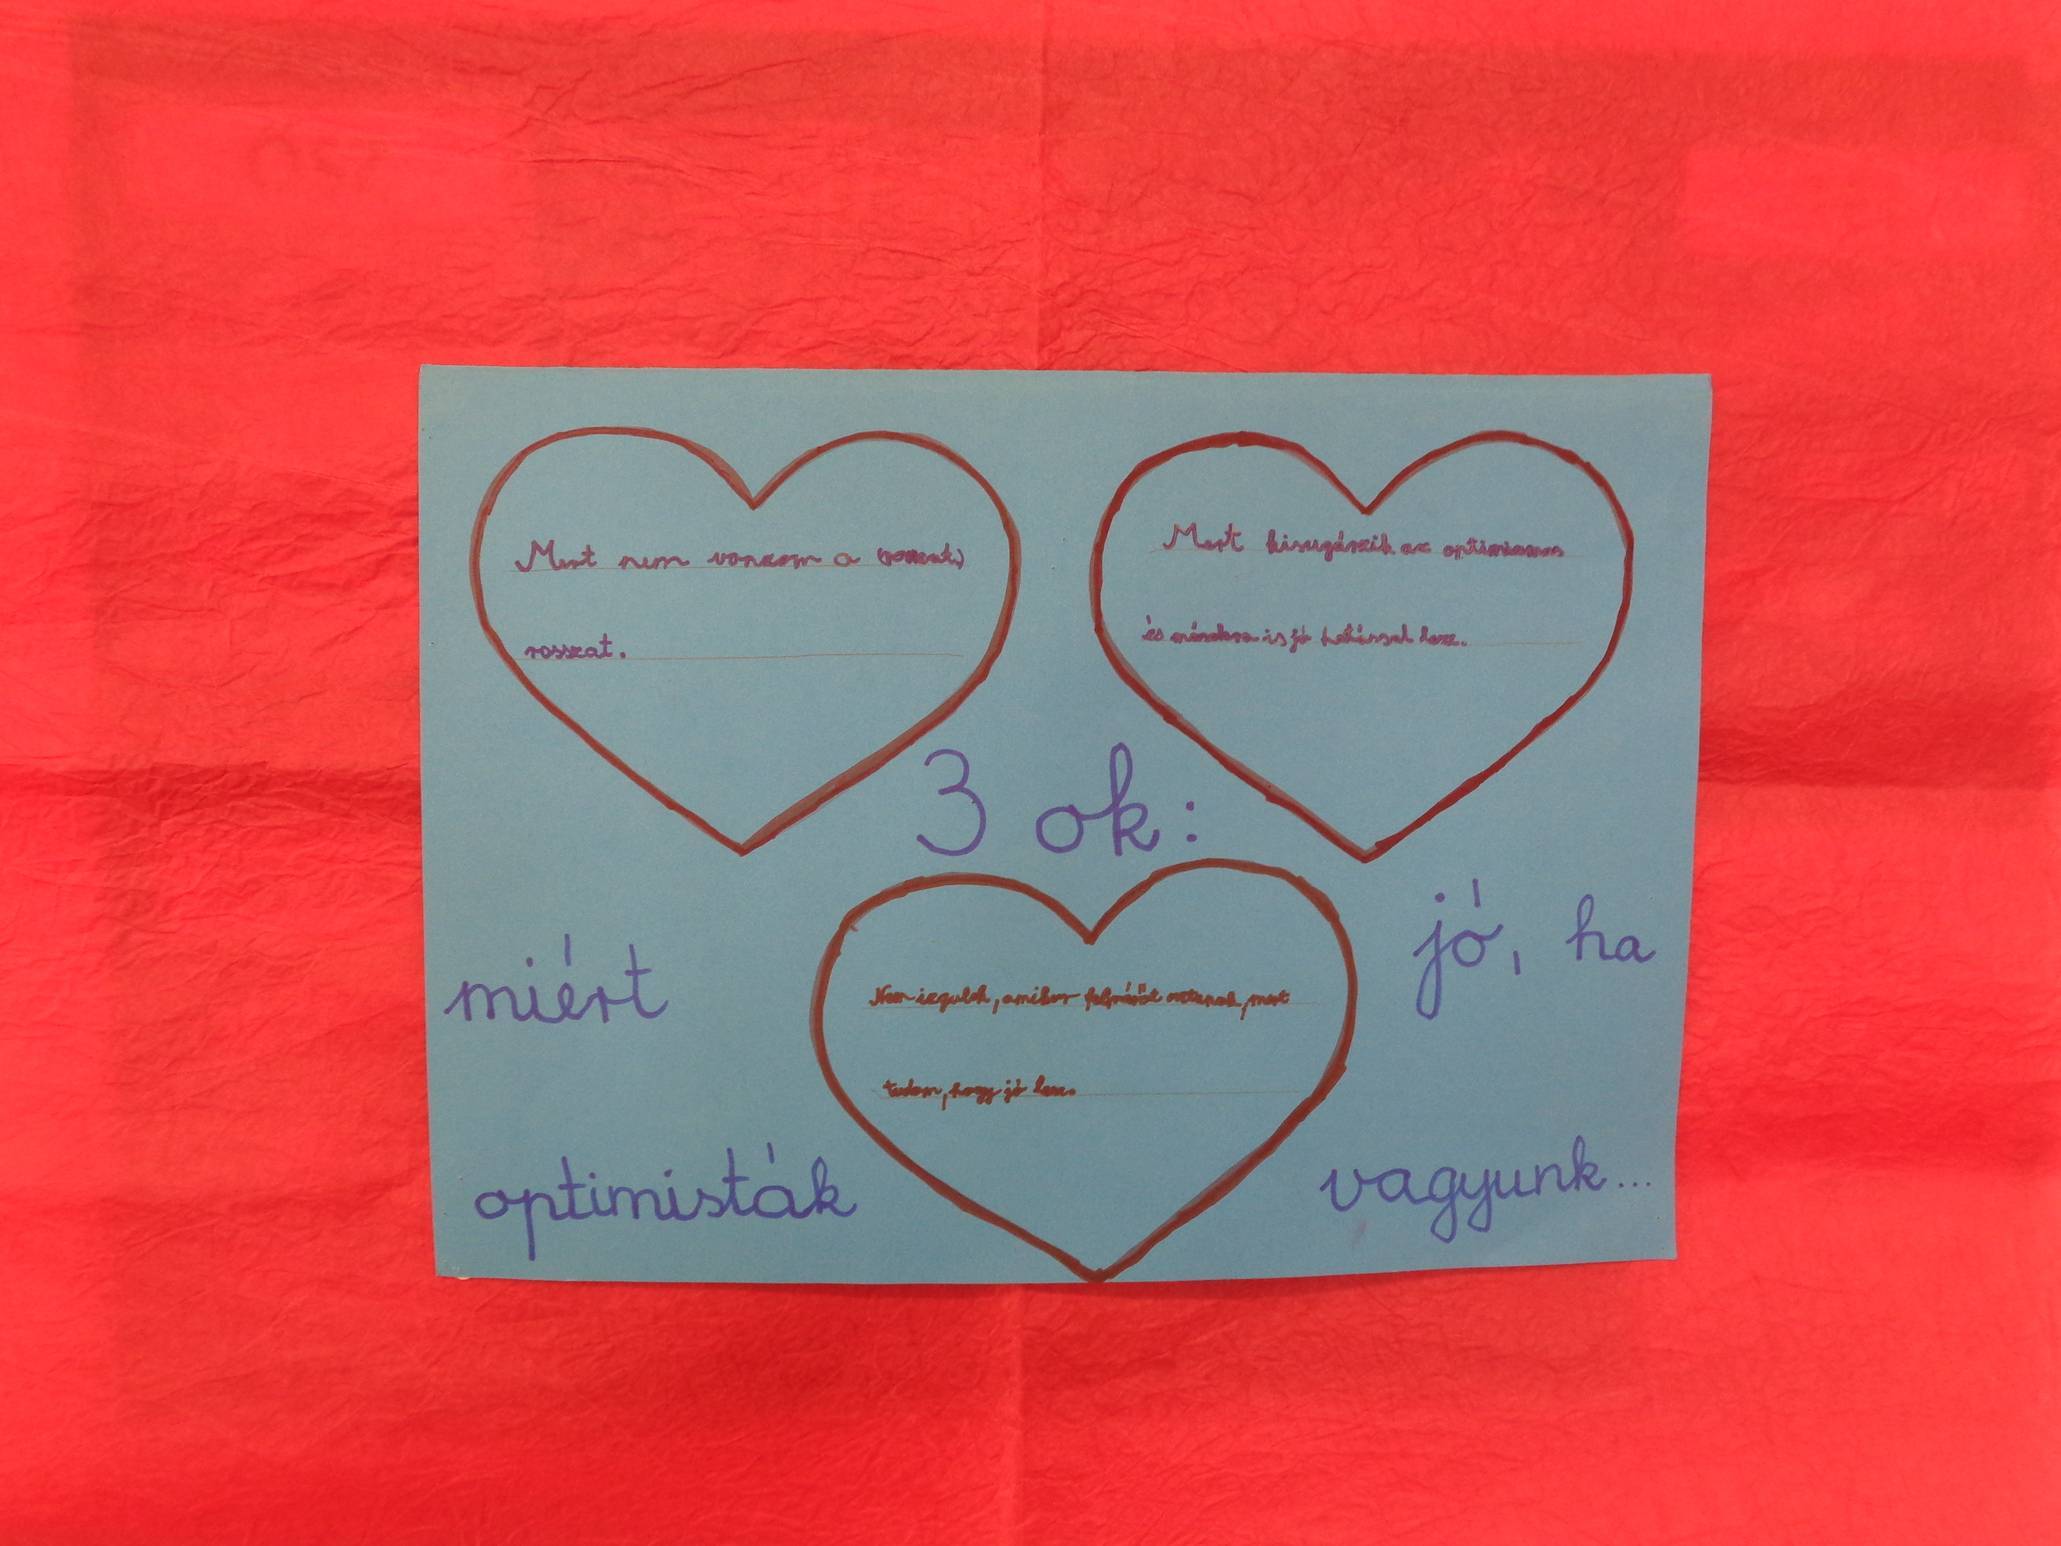 Mert nem vonzom a (rosszat)
rosszat.
Mert kisugárzik az optimizmus
és másokra is jó hatással lesz.
3 ok:
miért
jó, ha
Nem izgulok, amikor felmérőt osztanak, mert
tudom, hogy jó lesz.
optimisták
vagyunk...